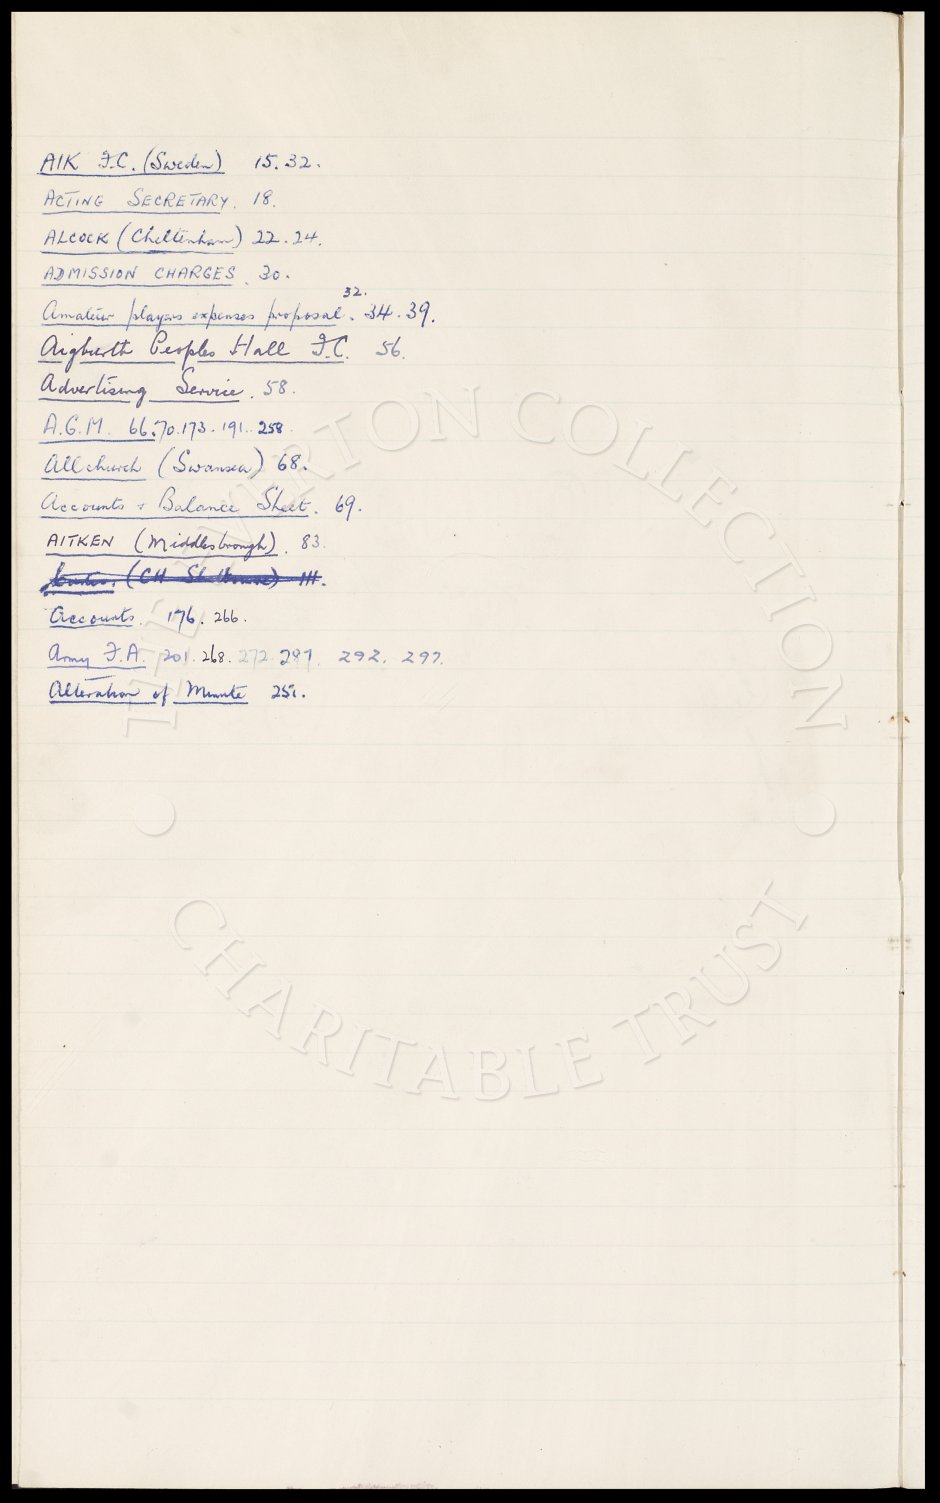 AIK F.C. (Sweden) 15. 32.
ACTING SECRETARY. 18.
ALCOCK (Cheltenham) 22. 24.
ADMISSION CHARGES. 30.
32.
Amateur players expenses proposal. 34. 39.
Aigburth Peoples Hall F.C. 56.
Advertising Service. 58.
A.G.M. 66. 70. 173. 191. 258.
Allchurch (Swansea) 68.
Accounts & Balance Sheet. 69.
AITKEN (Middlesbrough). 83.
(CH 111.
Accounts. 176. 266.
Army F.A. 201. 268. 272. 287. 292. 297.
Alteration of Minute 251.
THE EVERTON COLLECTION
CHARITABLE TRUST